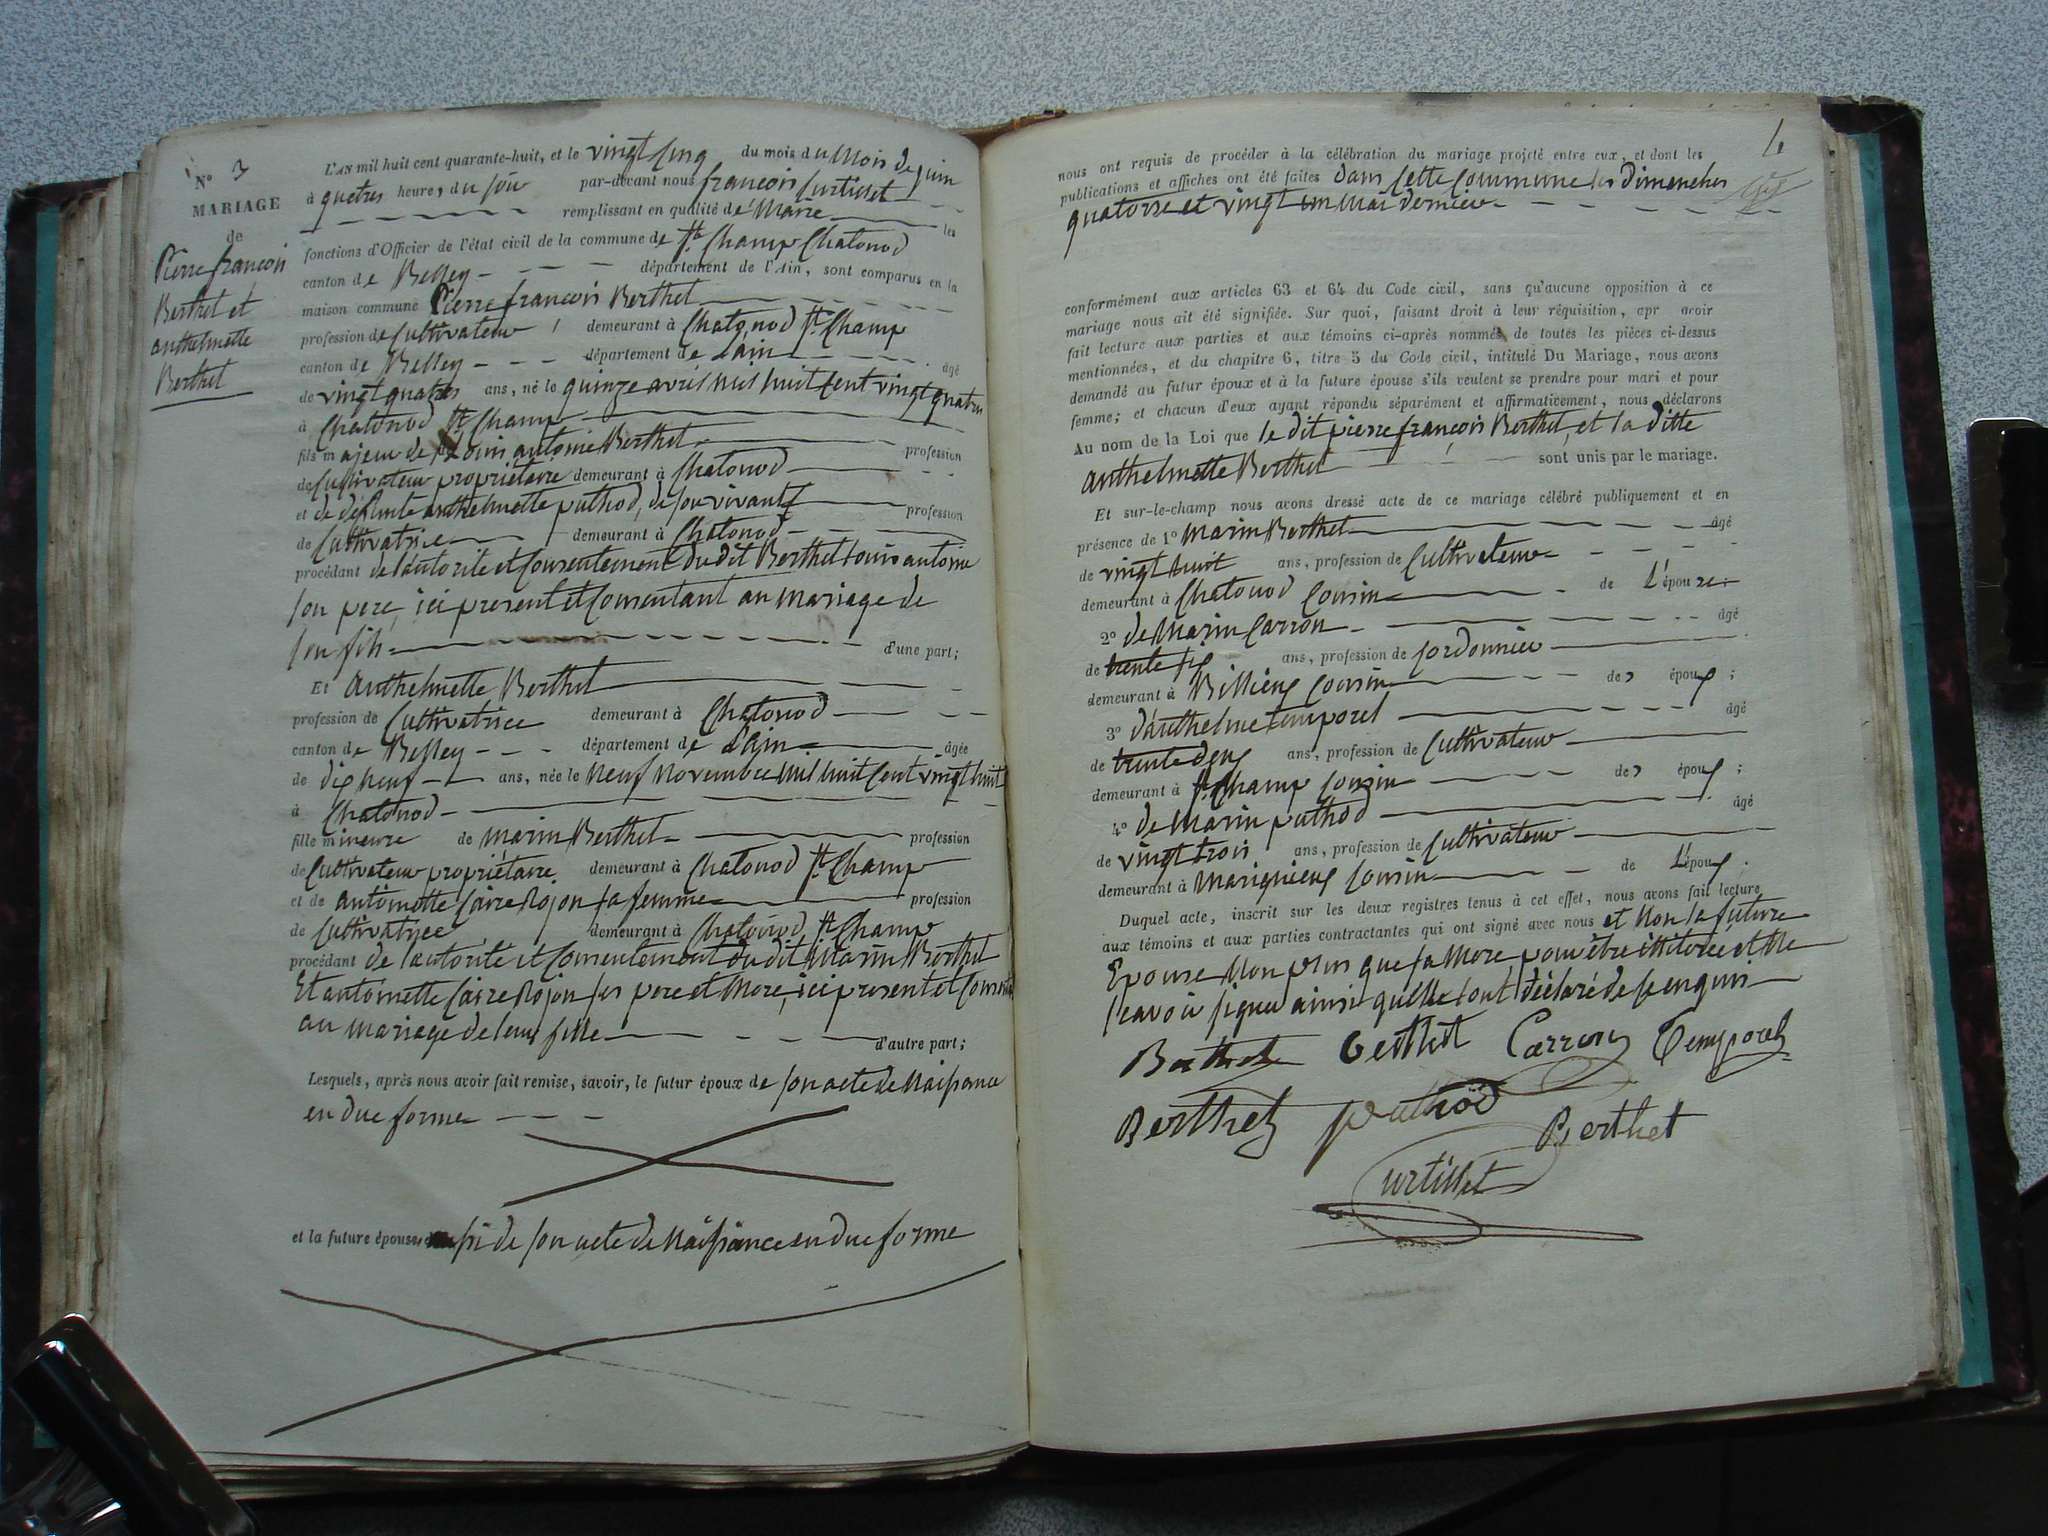 N° 3
MARIAGE
de
Pierre françois
Berthet et
anthelmette
Berthet
L'AN mil huit cent quarante-huit, et le vingt cinq du mois du Mois de juin
à quatres heures du soir par-devant nous françois Curtillet
remplissant en qualité de Maire les
fonctions d'Officier de l'état civil de la commune de St Champ Chatonod
canton de Belley département de l'Ain, sont comparus en la
maison commune Pierre françois Berthet
profession de Cultivateur demeurant à Chatonod St Champ
canton de Belley département de Lain âgé
de vingt quatres ans, né le quinze avril mil huit Cent vingt quatre
à Chatonod St Champ
fils majeur de Louis antoine Berthet profession
de Cultivateur propriétaire demeurant à Chatonod
et de défunte anthelmette puthod, de son vivant profession
de Cultivatrice demeurant à Chatonod
procédant de l'autorité et Consentement du dit Berthet Louis antoine
son pere, ici present et Consentant au mariage de
son fils d'une part;
Et Anthelmette Berthet
profession de Cultivatrice demeurant à Chatonod
canton de Belley département de Lain âgée
de dix neuf ans, née le Neuf Novembre mil huit Cent vingt huit
à Chatonod
fille mineure de Marin Berthet profession
de Cultivateur propriétaire demeurant à Chatonod St Champ
et de antoinette Claire Rojon sa femme profession
de Cultivatrice demeurant à Chatonod St Champ
procédant de l'autorité et Consentement du dit Marin Berthet
Et antoinette Claire Rojon ses pere et Mere, ici present et
au mariage de leur fille d'autre part;
Lesquels, après nous avoir fait remise, savoir, le futur époux de son acte de Naissance
en due forme
et la future épouse aussi de son acte de Naissance en due forme
nous ont requis de procéder à la célébration du mariage projeté entre eux, et dont les
publications et affiches ont été faites dans Cette Commune les dimenches
quatorze et vingt un Mai dernier
conformément aux articles 63 et 64 du Code civil, sans qu'aucune opposition à ce
mariage nous ait été signifiée. Sur quoi, faisant droit à leur réquisition, apr avoir
fait lecture aux parties et aux témoins ci-après nommés de toutes les pièces ci-dessus
mentionnées, et du chapitre 6, titre 5 du Code civil, intitulé Du Mariage, nous avons
demandé au futur époux et à la future épouse s'ils veulent se prendre pour mari et pour
femme; et chacun d'eux ayant répondu séparément et affirmativement, nous déclarons
Au nom de la Loi que le dit pierre françois Berthet, et la ditte
anthelmette Berthet sont unis par le mariage.
Et sur-le-champ nous avons dressé acte de ce mariage célébré publiquement et en
présence de 1° Marin Berthet âgé
de vingt huit ans, profession de Cultivateur
demeurant à Chatonod Cousin de L'épouse
2° de Marin Carron âgé
de trente six ans, profession de Cordonnier
demeurant à Billieux Cousin de époux;
3° d'anthelme temporel âgé
de trente deux ans, profession de Cultivateur
demeurant à St Champ Cousin de époux;
4° de Marin puthod âgé
de vingt trois ans, profession de Cultivateur
demeurant à Marignieux Cousin de L'époux.
Duquel acte, inscrit sur les deux registres tenus à cet effet, nous avons fait lecture
aux témoins et aux parties contractantes qui ont signé avec nous et Non la future
Epouse Non plus que sa Mere pour être et Ne
scavoir signer ainsi quelle l'ont déclaré de ce enquis
Berthet Berthet Carron Temporel
Berthet puthod Berthet
Curtillet